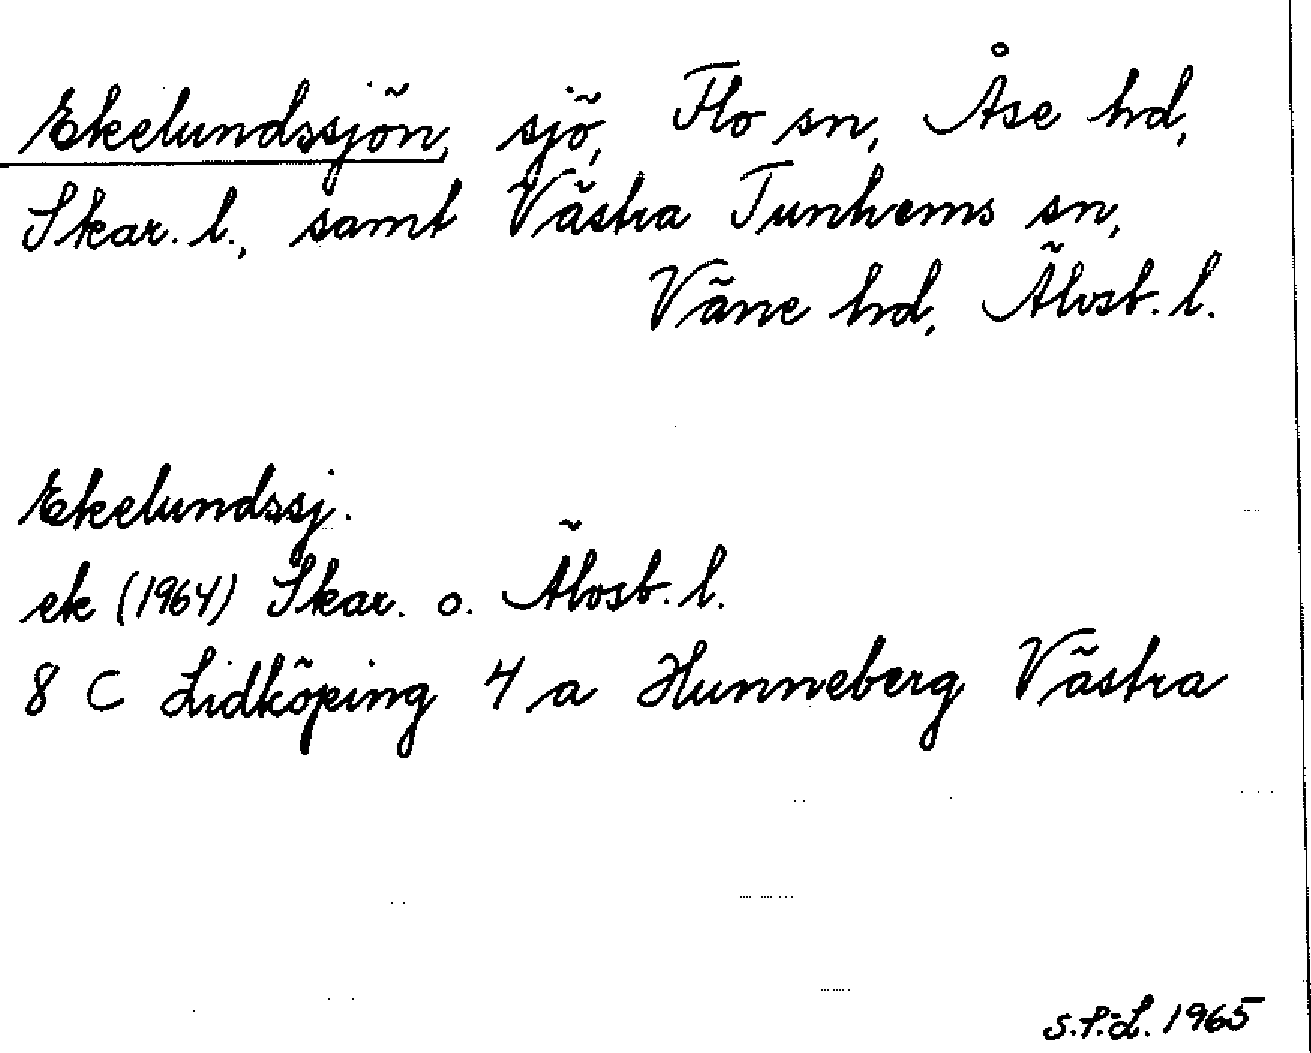 Ekelundssjön, sjö, Flo sn, Åse hd,
Skar. l., samt Västra Tunhems sn,
Väne hd, Älvsb. l.
Ekelundssj.
ek (1964) Skar. o. Älvsb. l.
8 C Lidköping 4 a Hunneberg Västra
1965